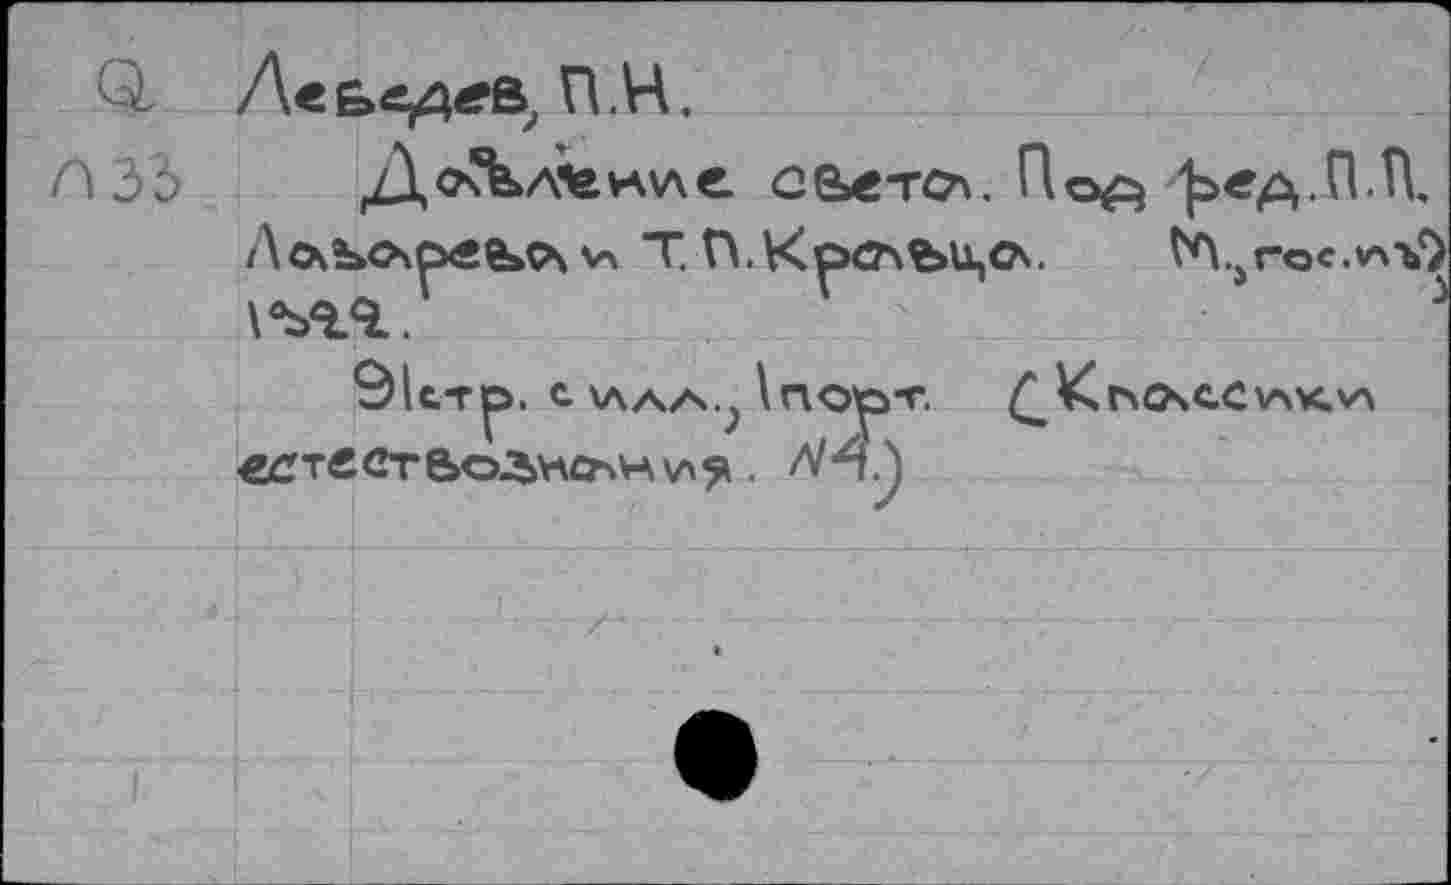 Q Лебедев, П.Н.
Л33 Давление света. Под ред. П.П.
Лазарева и Т.П. Кравца. М., гос.изд,
1922.
91стр. с илл., 1порт. (Классики
естествознания. N4.)